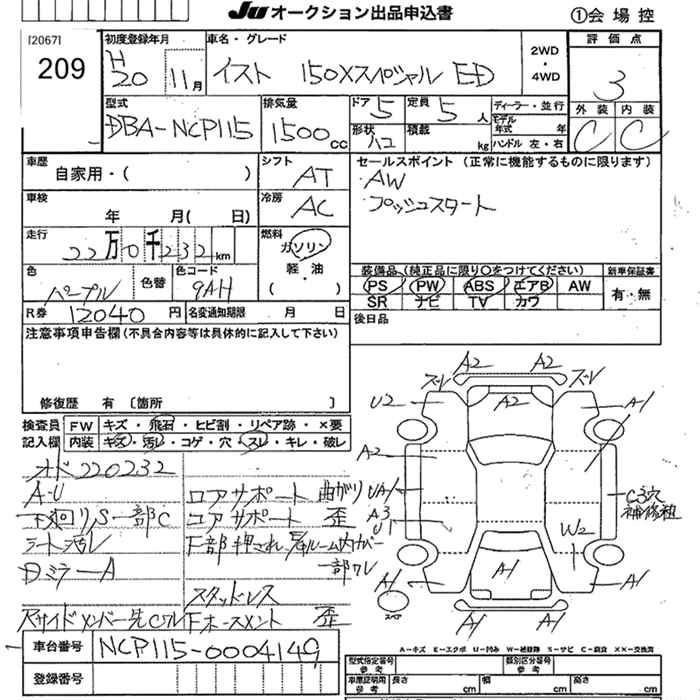 JU オークション出品申込書 ①会場控
[2067]
209
初度登録年月 車名・グレード 2WD・4WD 評価点
H20 11月 イスト 150Xスペシャル ED 3
型式 排気量 ドア 5 定員 5人 ディーラー・並行 外装 内装
DBA-NCP115 1500cc 形状 ハコ 積載 kg モデル年式 年 ハンドル 左・右 C C
車歴 シフト セールスポイント (正常に機能するものに限ります)
自家用・( ) AT AW
車検 冷房 プッシュスタート
年 月( 日) AC
走行 燃料
22万0千232km ガソリン
軽・油
・( )
装備品 (純正品に限り○をつけてください) 新車保証書
色 色替 色コード PS PW ABS エアB AW 有・無
パープル 9AH SR ナビ TV カワ
R券 12040円 名変通知期限 月 日 後日品
注意事項申告欄 (不具合内容等は具体的に記入して下さい)
修復歴 有 〔箇所 〕
検査員 FW キズ・飛石・ヒビ割・リペア跡・×要
記入欄 内装 キズ・汚レ・コゲ・穴・スレ・キレ・破レ
オド220232
A-U ロアサポート 曲がり
下廻りS一部C コアサポート 歪
シート汚レ
DミラーA 一部ワレ
スタッドレス
Rサイドメンバー先Cワレ Fホースメント 歪
ズレ A2 A2 ズレ
U2 A2 A-1
A2
UA1
A3
U1
C3穴
補修粗
W2
A1 A1 A1
スペア A1 A1
車台番号 NCP115-0004149
登録番号
A-キズ E-エクボ U-凹み W-補修跡 S-サビ C-腐食 ××-交換済
型式指定番号 参考 類別区分番号 参考
車庫証明用 参考 長さ cm 幅 cm 高さ cm